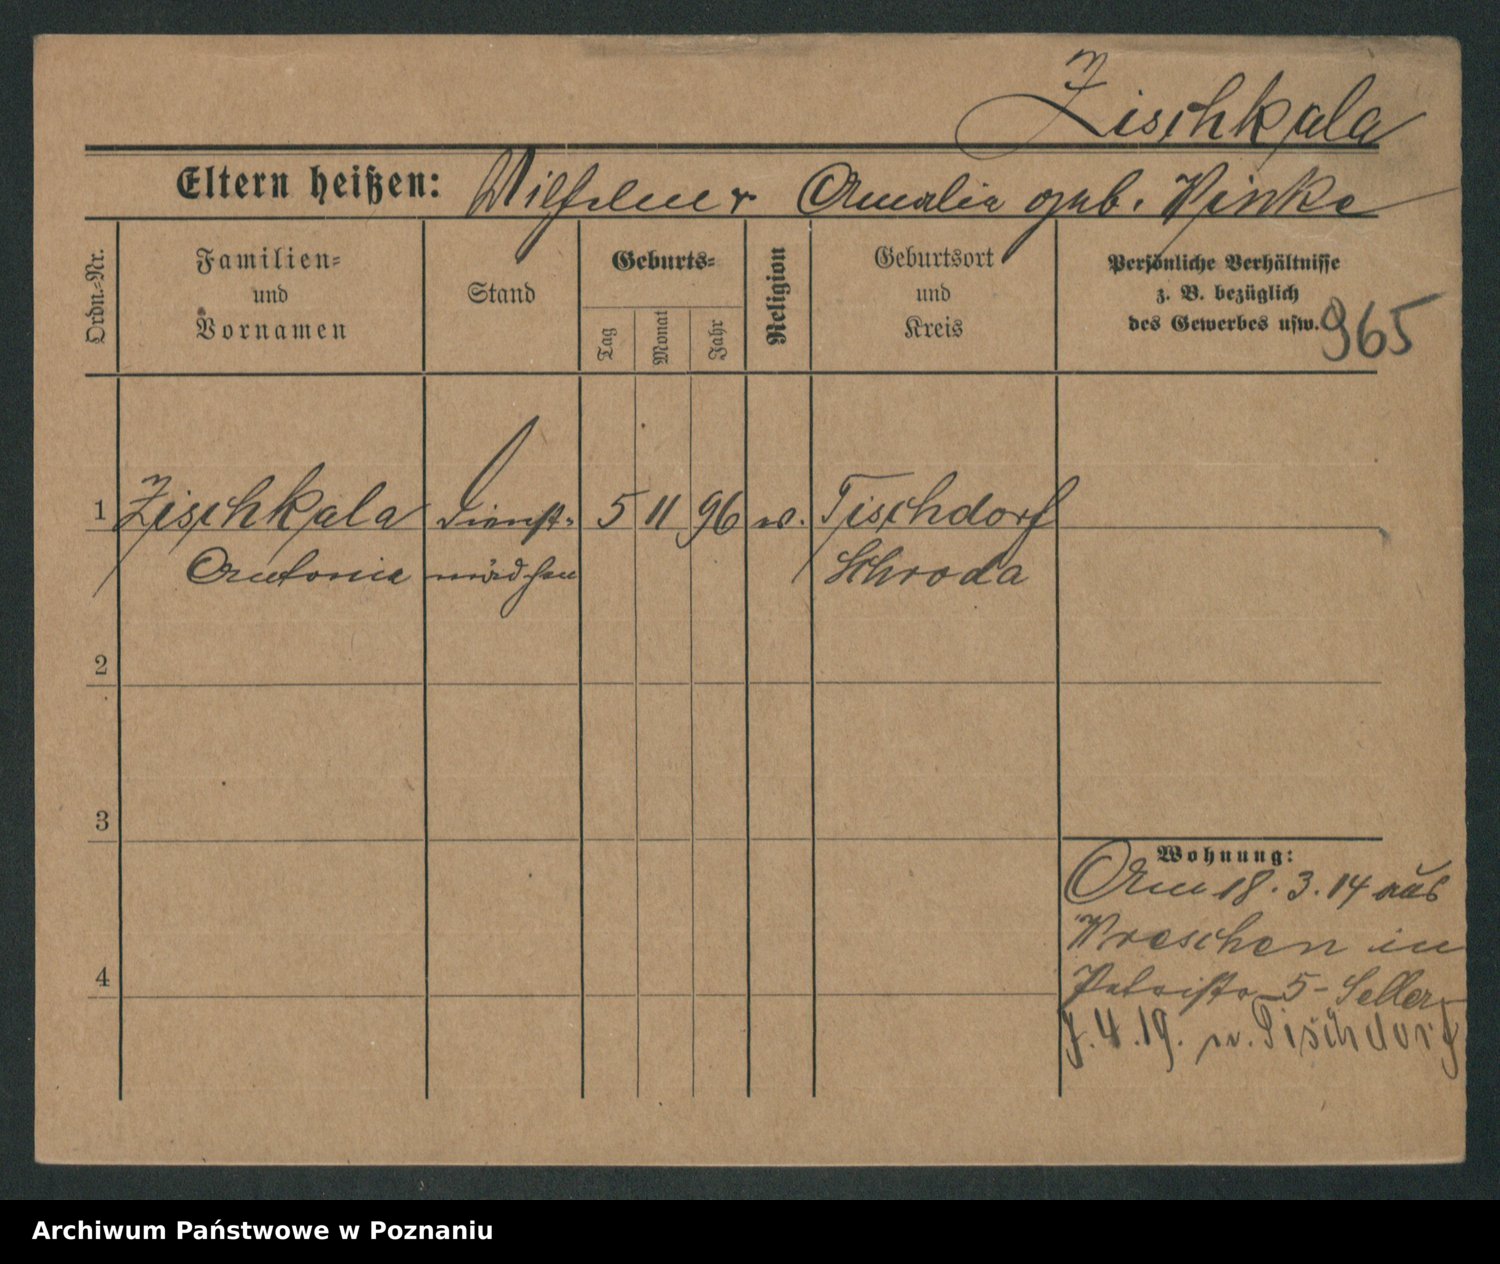 Zischkala
Eltern heißen: Wilhelm u Amalia geb. Pinke
Ordn.-Nr.
Familien-
und
Vornamen
Stand
Geburts-
Tag
Monat
Jahr
Religion
Geburtsort
und
Kreis
Persönliche Verhältnisse
z. B. bezüglich
des Gewerbes usw.
965
1 Zischkala Dienst- 5 11 96 Tischdorf
Antonie mädchen Schroda
2
3
Wohnung:
Am 18. 3. 14 aus
Wreschen in
4
5 - Seller
4. 19. n. Tischdorf
Archiwum Państwowe w Poznaniu